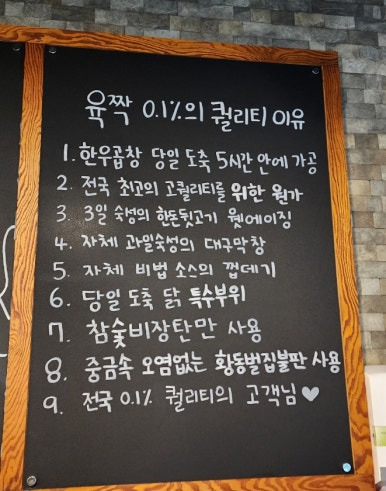 육짝 0.1%의 퀄리티 이유
1. 한우곱창 당일 도축 5시간 안에 가공
2. 전국 최고의 고퀄리티를 위한 원가
3. 3일 숙성의 한돈뒷고기 웻에이징
4. 자체 과일숙성의 대구막창
5. 자체 비법 소스의 껍데기
6. 당일 도축 닭 특수부위
7. 참숯비장탄만 사용
8. 중금속 오염없는 황동벌집불판 사용
9. 전국 0.1% 퀄리티의 고객님♥